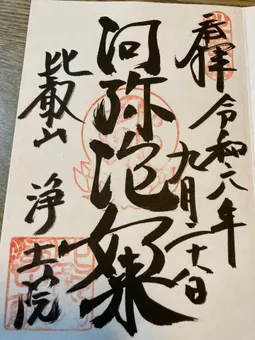 奉拝
令和六年
九月二十日
阿弥陀如来
比叡山
浄土院